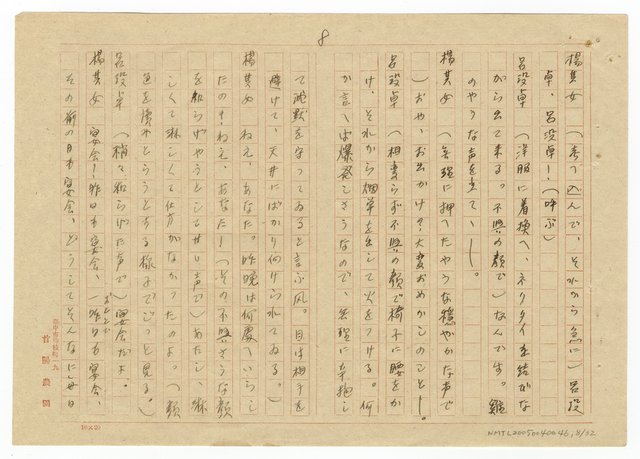 8
楊其女 (考へ込んで、それから急に)呂段
卓、呂段卓!(呼ぶ)
呂段卓 (洋服に着換へ、ネクタイを結びな
がら出て来る。不興の顔で)なんです。鶏
のやうな声を立てて、――。
楊其女 (無理に押へたやうな穏やかな声で
)おや、お出かけ?大変おめかしのこと――。
呂段卓 (相変らず不興の顔で椅子に腰をか
け、それから烟草を出して火をつける。何
か言へば爆発しさうなので、無理に辛抱し
て沈黙を守ってゐると言ふ風。目は相手を
避けて、天井にばかり向けられてゐる。)
楊其女 ねえ、あなた。昨晩は何處へいらし
たの?ねえ、あなた!(その不興さうな顔
を和らげやうとして甘い声で)あたし、淋
しくて淋しくて仕方がなかったのよ。(顔
色を虜れとらうとする様子でじっと見る。)
呂段卓 (稍て和らげた声で)宴会だよ。
楊其女 宴会!昨日も宴会、一昨日も宴会、
その前の日も宴会、どうしてそんなに毎日
首陽農園
(10×20)
NMTL20050040046, 8/32